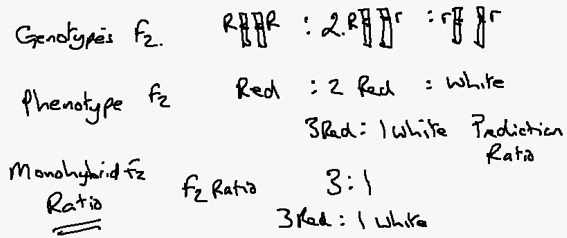 Genotypes f2. R R : 2. R r : r r
Phenotype f2 Red : 2 Red : White
3 Red : 1 white Prediction
Ratio
Monohybrid f2 f2 Ratio 3 : 1
Ratio
3 Red : 1 white